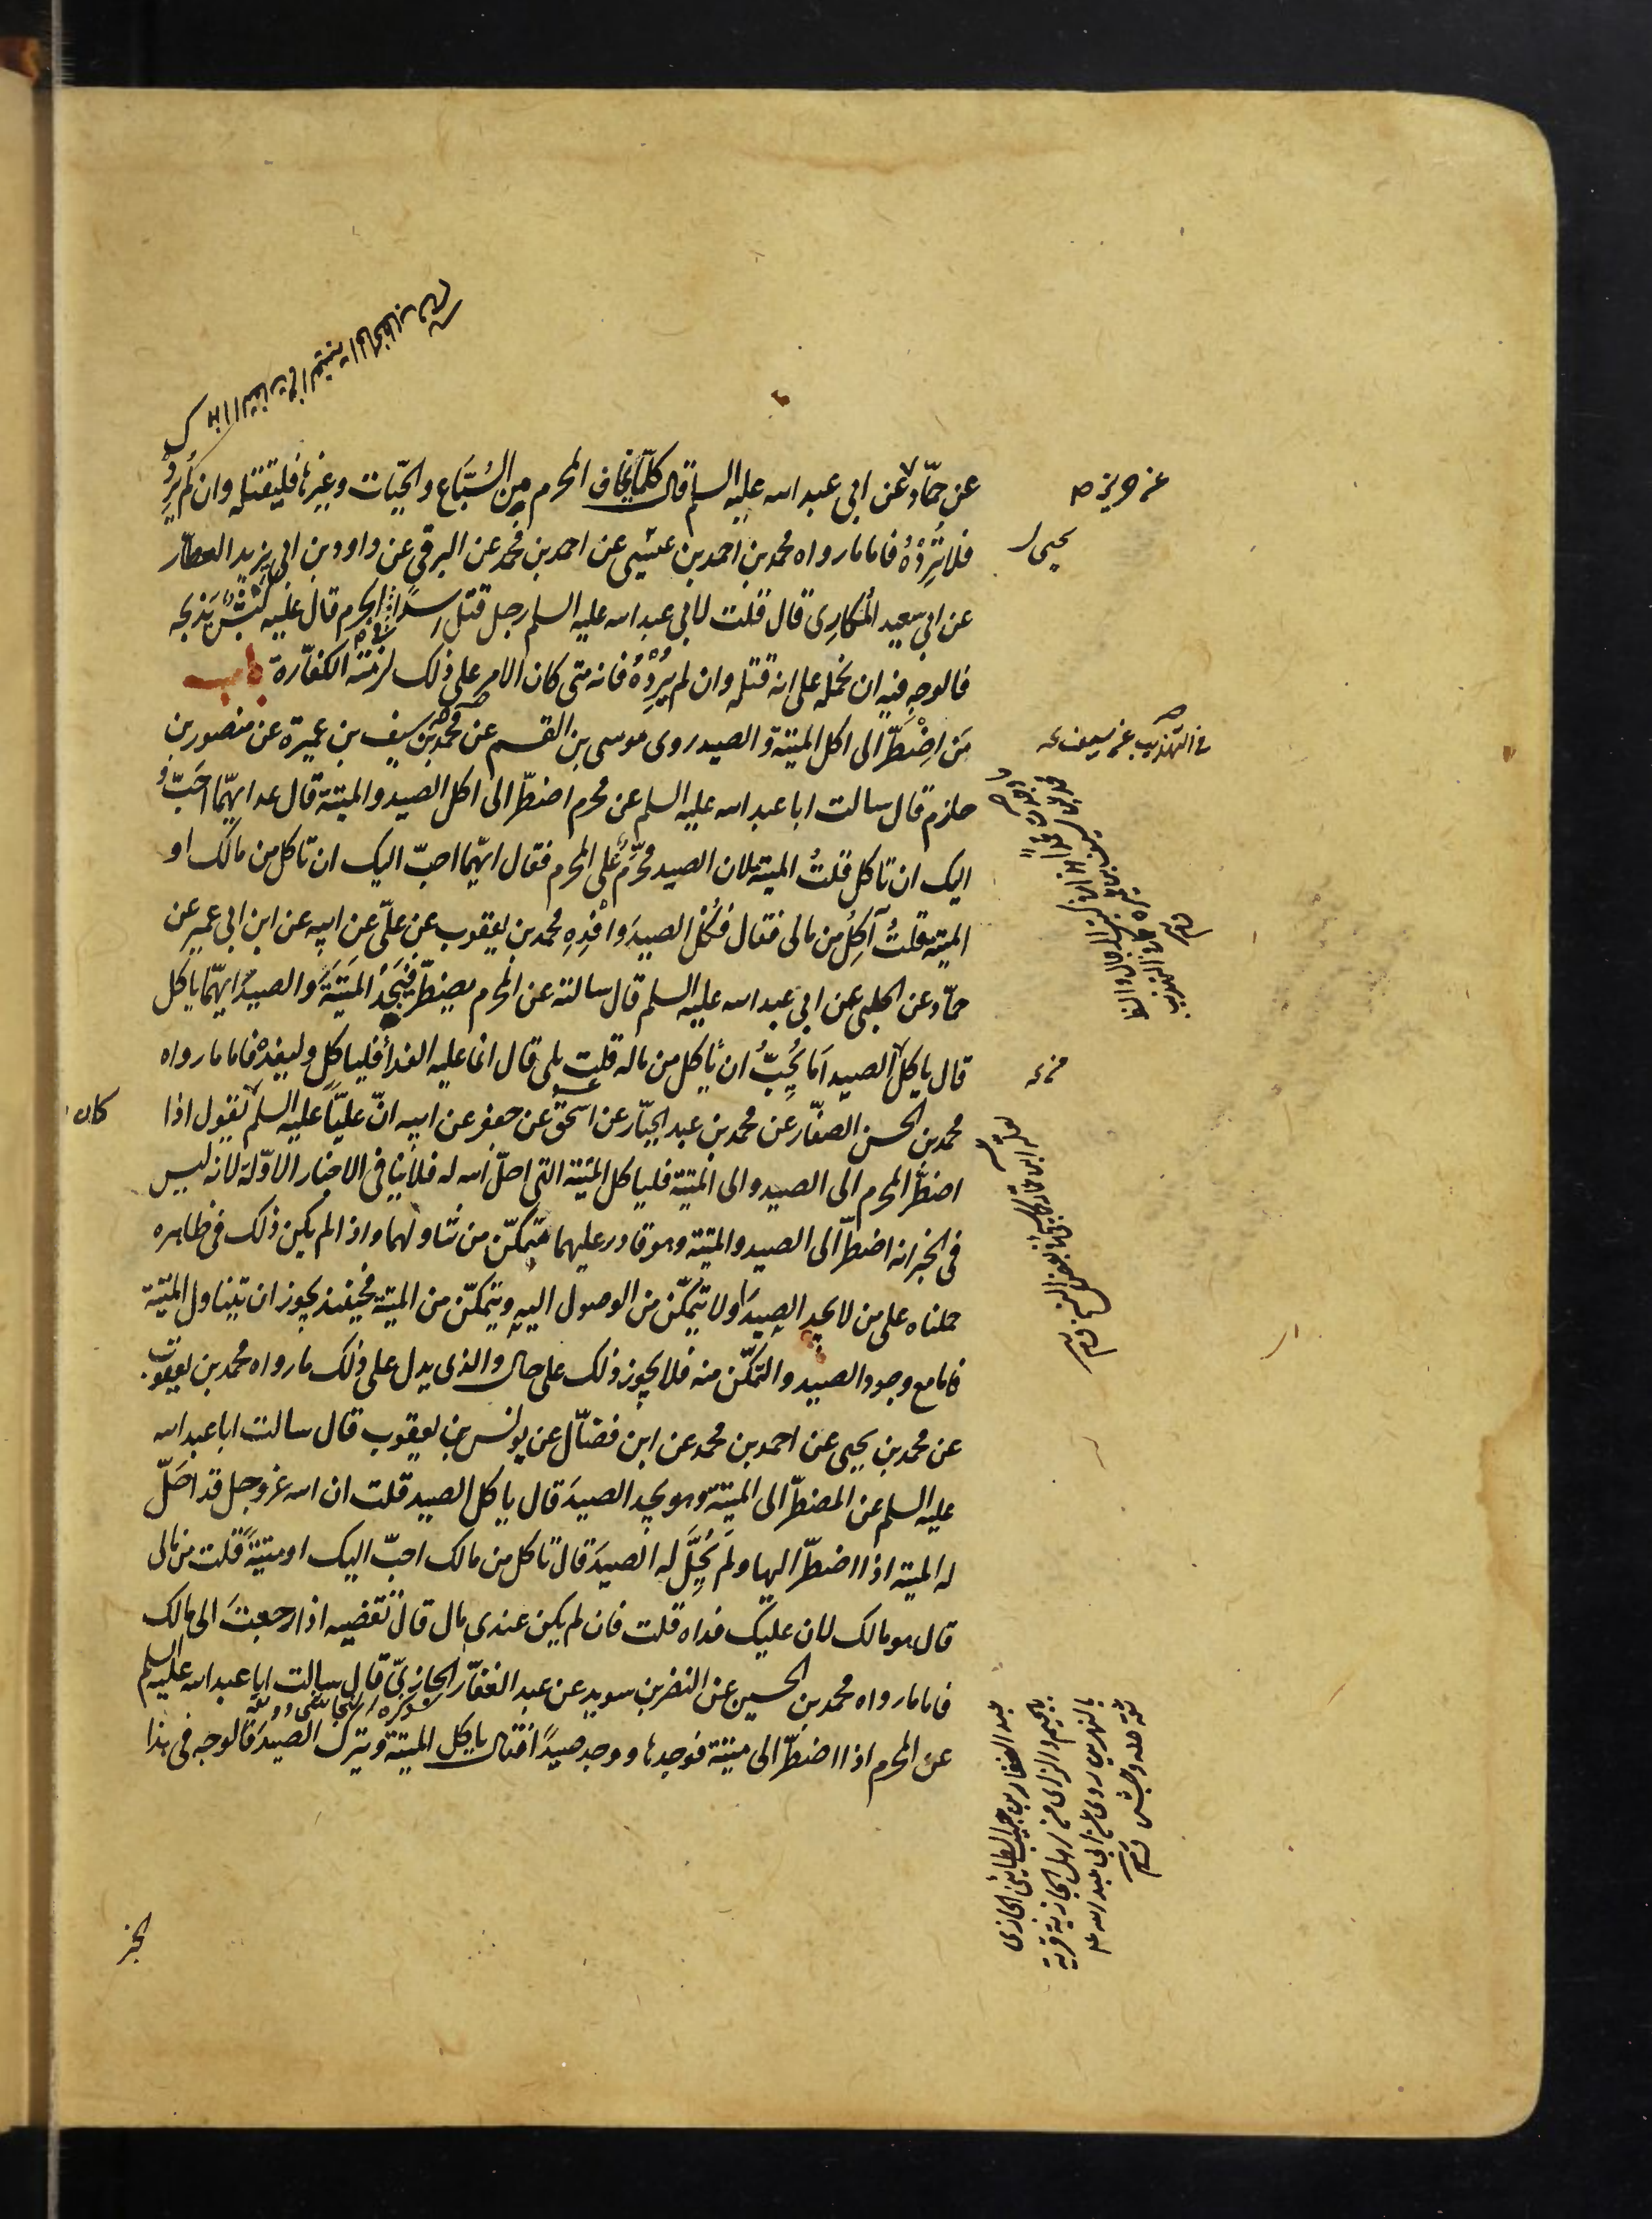 عن حمّاد عن ابى عبد الله عليه السلم قال كلّما يخاف المحرم من السّباع والحيّات وغيرها فليقتله وان لم يُرِدْ
فلا تُرِدْهُ فاما ما رواه محمد بن احمد بن عيسى عن احمد بن محمد عن البرقى عن داود بن ابى يزيد العطار
عن ابى سعيد المُكارِى قال قلت لابى عبد الله عليه السلم رجل قتل اسدًا فى الحرم قال عليه كبشٌ يَذبحه
فالوجه فيه ان نحمله على انه قتله وان لم يُرِدْهُ فانه متى كان الامر على ذلك لزمته الكفّارة باب
مَن اِضْطَرّ الى اكل الميتة والصيد روى موسى بن القسم عن محمد بن سيف بن عميرة عن منصور بن
حازم قال سالت ابا عبد الله عليه السلم عن محرم اضطرّ الى اكل الصيد والميتة قال ايهما احَبّ
اليك ان تاكل قلتُ الميتة لان الصيد محرَّمٌ على المحرم فقال ايّهما احبّ اليك ان تاكل من مالك او
الميتة قلتُ آكِلُ من مالى فقال فكُلِ الصيدَ وافْدِهِ محمد بن يعقوب عن علىّ عن ابيه عن ابن ابى عمير عن
حمّاد عن الحلبى عن ابى عبد الله عليه السلم قال سالته عن المحرم يضطرّ فيَجدُ الميتةَ والصيدَ ايّهما ياكل
قال ياكل الصيد اَما يُحِبُّ ان ياكل من ماله قلت بلى قال انما عليه الفداُ فلياكل وليفدْ فاما ما رواه
محمد بن الحسن الصفّار عن محمد بن عبد الجبّار عن اسحق عن جعفر عن ابيه انّ عليّاً عليه السلم يقول اذا
اضطرّ المحرم الى الصيد والى الميتة فلياكل الميتة التى احلّ الله له فلا ينافى الاخبار الاوّلة لانه ليس
فى الخبر انه اضطرّ الى الصيد والميتة وهو قادر عليهما متمكّن من تناولهما واذا لم يكن ذلك فى ظاهره
حملناه على من لا يجد الصيدَ او لا يتمكّن من الوصول اليه ويتمكّن من الميتة فحينئذ يجوز ان يتناول الميتة
فاما مع وجود الصيد والتمكّن منه فلا يجوز ذلك على حال والذى يدل على ذلك ما رواه محمد بن يعقوب
عن محمد بن يحيى عن احمد بن محمد عن ابن فضّال عن يونس بن يعقوب قال سالت ابا عبد الله
عليه السلم عن المضطرّ الى الميتة وهو يجد الصيدَ قال ياكل الصيد قلت ان الله عز وجل قد احَلّ
له الميتة اذا اضطرّ اليها ولم يُحِلَّ له الصيدَ قال تاكل من مالك احبّ اليك او ميتةً قلت من مالى
قال هو مالك لان عليك فداه قلت فان لم يكن عندى مال قال تقضيه اذا رجعتَ الى مالك
فاما ما رواه محمد بن الحسين عن النضر بن سويد عن عبد الغفّار الجازىّ قال سالت ابا عبد الله عليه السلم
عن المحرم اذا اضطرّ الى ميتة فوجدها ووجد صيدًا فقال ياكل الميتة ويترك الصيدَ فالوجه فى هذا
الخبر
عن حريز صح
يحيى
فى التهذيب عن سيف
كان
عبد الغفار بن حبيب الطائى الجازى
بالجيم والزاى من اهل الجازية قرية
بالنهرين روى عن ابى عبد الله ع
ثقة